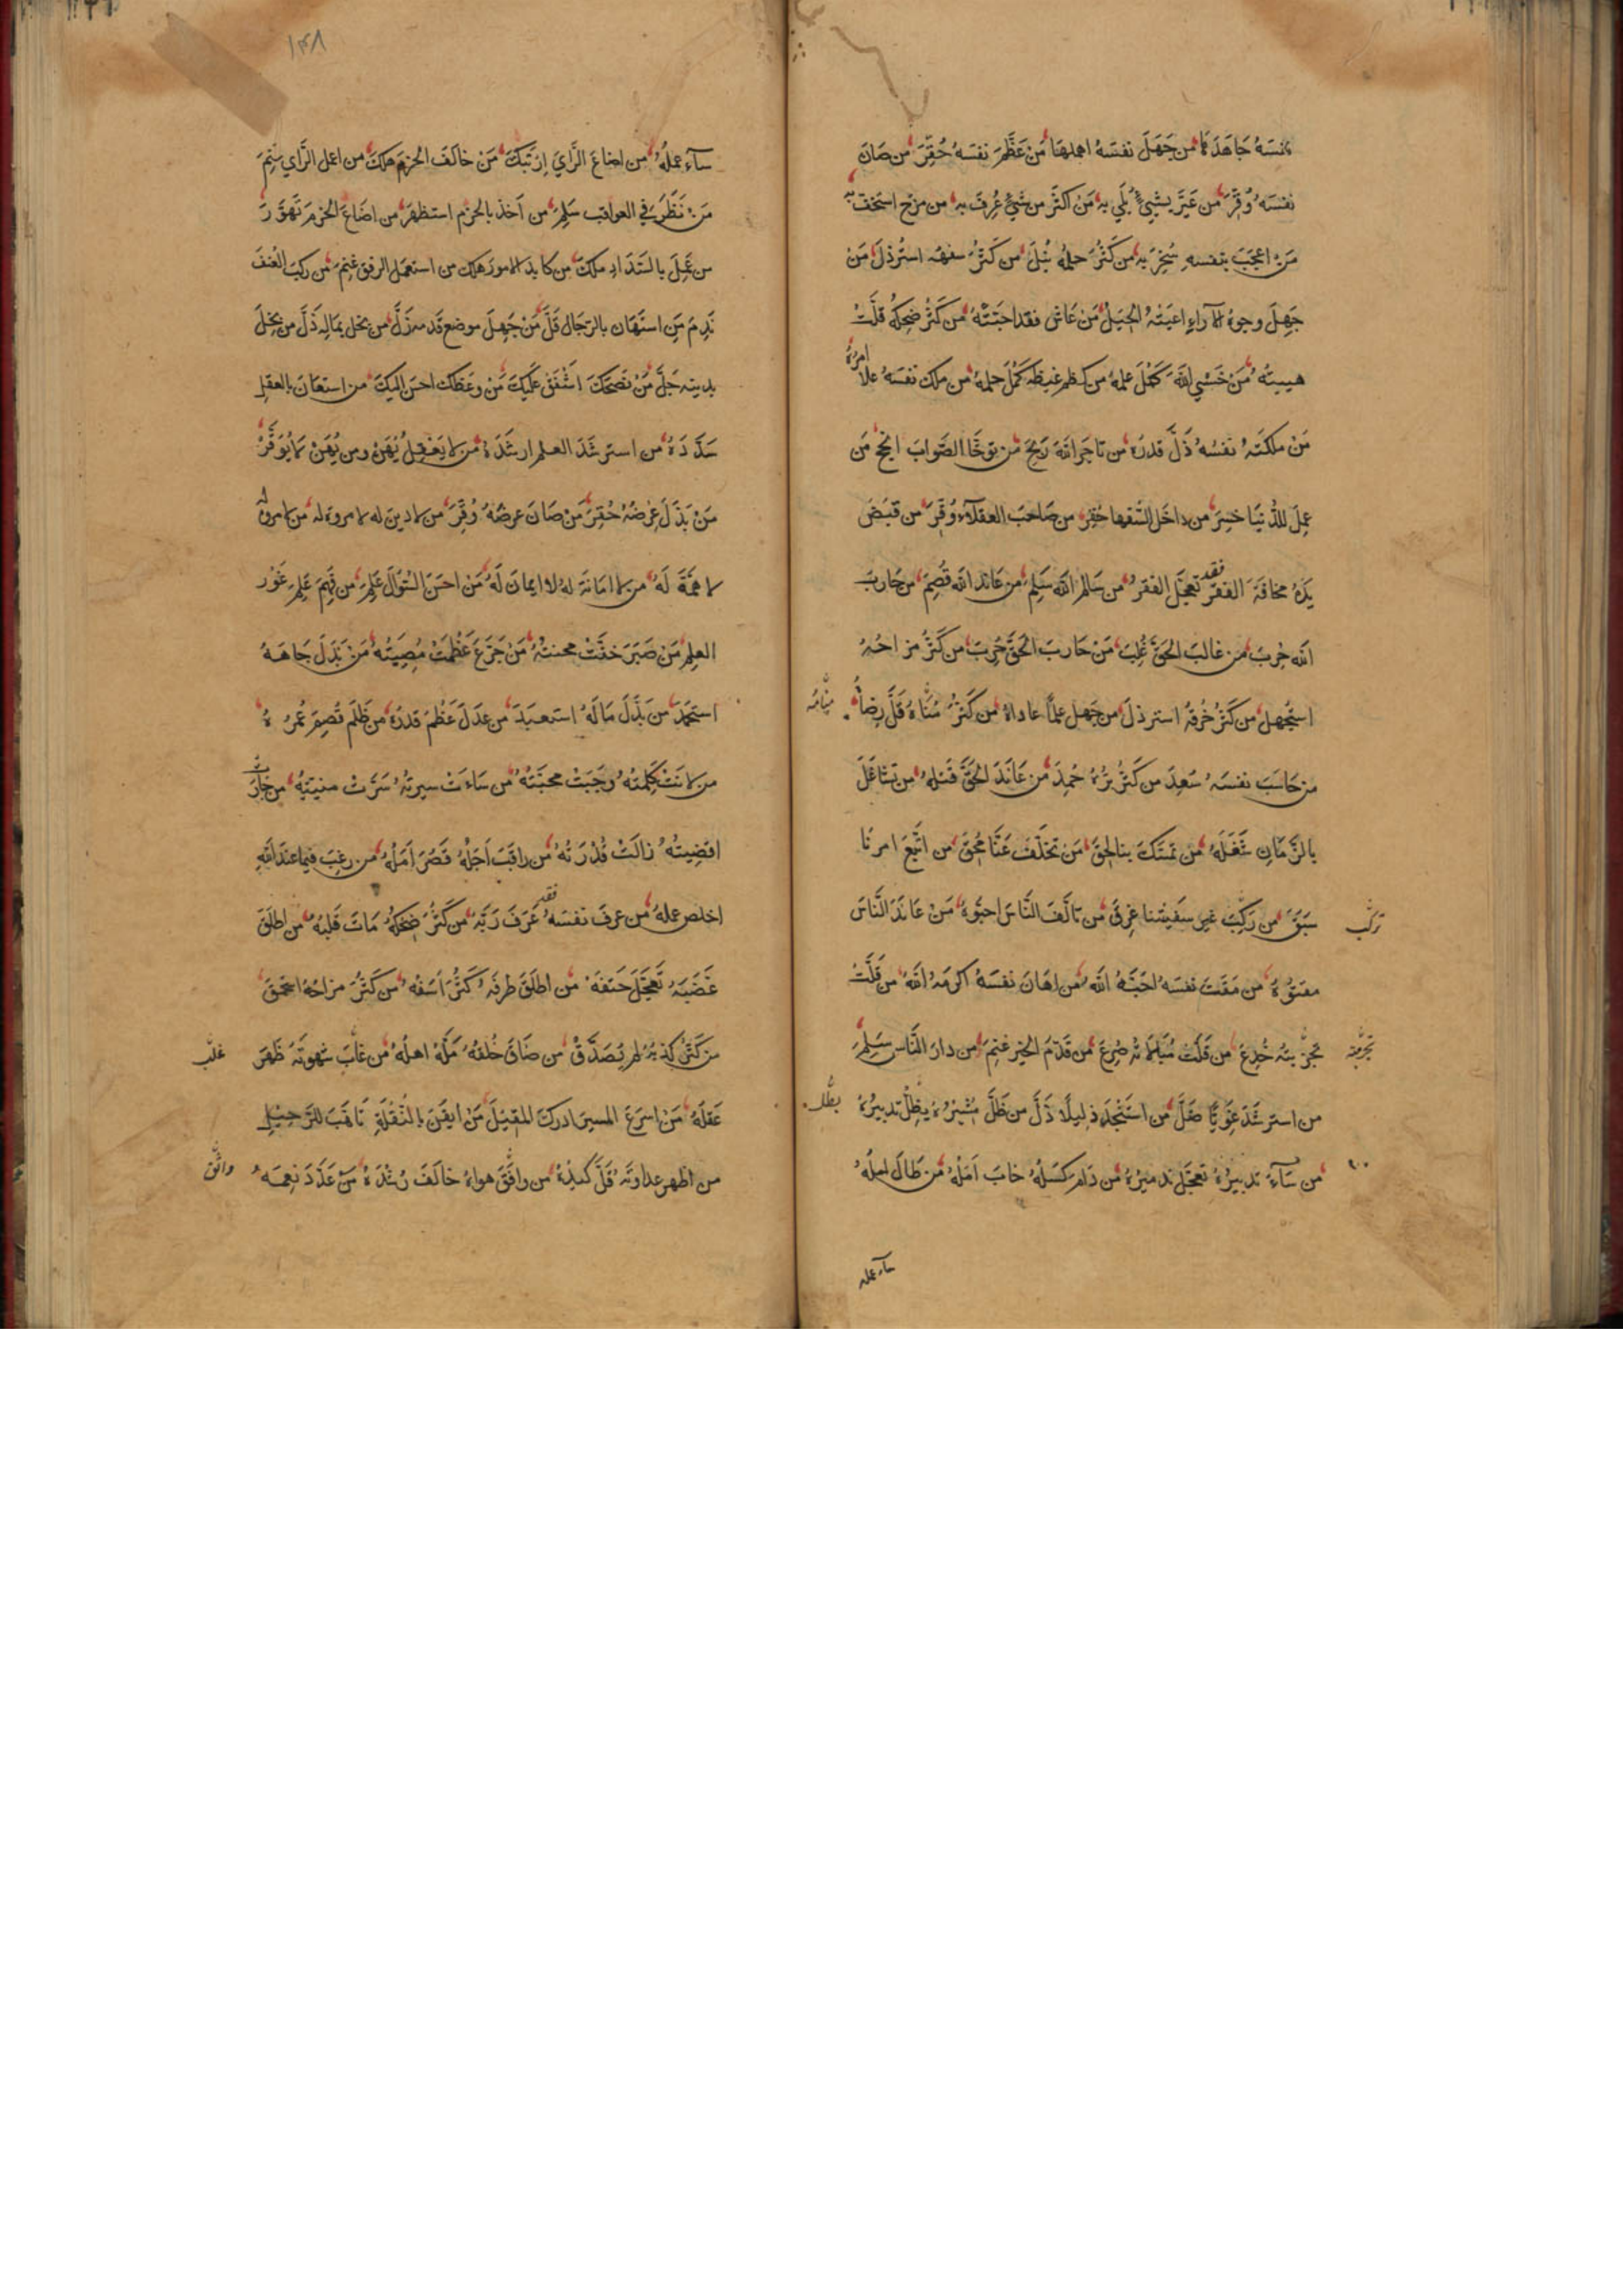 نفسَهُ جَاهَدَهَا من جَهِلَ نفسَهُ اهملهَا مَن عَظَّمَ نفسَهُ حُقِّرَ من صَانَ
نفسَهُ وُقِّرَ من عَيَّرَ بشيءٍ بُلِيَ به مَن اكثَرَ من شيءٍ عُرِفَ به من مزح استخفّ به
مَن اعجَبَ بنفسهِ سُخِرَ به من كَثُرَ حلمهُ نَبُلَ من كَثُرَ سفههُ استُرذلَ مَن
جَهِلَ وجوهَ الآراءِ اعيَتهُ الحِيَلُ مَن عَاش فقد احبّتَهُ من كَثُرَ ضحِكهُ قلَّتْ
هيبتُهُ مَن خَشِي اللهَ كَمُلَ علمهُ من كظم غيظه كَمُلَ حلمه من ملك نفسَهُ علا امرُهُ
مَن ملكَتهُ نفسُهُ ذَلَّ قدرُهُ من تاجَرَ اللهَ رَبِحَ من توخَّا الصَّوابَ انجح مَن
عمِلَ للدُّنيَا خسِرَ من داخَل السُّفها حُقِرَ من صَاحبَ العقلآءَ وُقِّرَ من قبَضَ
يَدَهُ مخافَةَ الفقرِ فقد تعجَّل الفقرَ من سَالم اللهَ سَلِمَ من عَاند الله قُصِمَ من حَاربَ
الله حُرِبَ من غالبَ الحَقَّ غُلِبَ مَن حَاربَ الحَقَّ حُرِبَ من كَثُرَ مزاحُهُ
استُجهلَ من كَثُرَ خُرقهُ استرذلَ من جَهل علماً عاداهُ من كَثُرَ مُنَاهُ قَلَّ رِضاهُ
منامهُ
من حَاسَبَ نفسَهُ سَعِدَ من كَثُرَ بِرُّهُ حُمِدَ من عَانَدَ الحَقَّ قتلهُ من تشاغَلَ
بالزَّمَانِ شَغَلَهُ من تمسَّكَ بنا لحِقَ مَن تخلَّفَ عنَّا مُحِقَ من اتَّبَعَ امرَنَا
سَبَقَ من رَكِبَ غير سفينتنا غرِقَ من تالَّفَ النَّاسَ احبّوهُ مَن عَانَدَ النَّاسَ
تركب
مقتوهُ من مَقَتَ نفسَهُ احَبَّهُ اللهُ من اهَانَ نفسَهُ اكرمَهُ اللهُ من قَلَّتْ
تجربتهُ خُدِعَ من قَلَّت مُبَالاتهُ صُرِعَ من قدَّمَ الخير غنِمَ من دارَ النَّاس سَلِمَ
تجربته
من استرشَدَ غَوِيًّا ضلَّ من استَنجَدَ ذليلًا ذَلَّ من ضَلَّ مُشيرُهُ بطلَ تدبيرُهُ
بطل
من سَآءَ تدبيرُهُ تعجَّلَ تدميرُهُ من دَامَ كَسَلُهُ خابَ اَمَلُهُ من طَالَ املُهُ
ساء عمله
١٤٨
سآءَ عملُهُ من اضاعَ الرَّايَ ارتَبَكَ مَن خالَفَ الحزمَ هلكَ من اعمل الرَّاي غنِمَ
مَن نَظَرَ في العواقب سَلِمَ من اَخذ بالحَزم استظهرَ من اضَاعَ الحَزمَ تهوَّرَ
من عَمِلَ بالسَّدَادِ ملكَ من كابد الامور هلك من استعمَل الرفق غنِمَ من ركبَ العُنفَ
نَدِمَ مَن استهَان بالرّجَال قَلَّ مَن جَهِلَ موضع قدمه زَلَّ من بخل بمَالِهِ ذَلَّ من بخِلَ
بدينه جَلَّ مَن نصَحَكَ اشفَقَ عَلَيكَ مَن وعَظك احسَنَ اليكَ من استعَانَ بالعقلِ
سَدَّدَهُ من استرشَدَ العلم ارشَدَهُ من لا يَعقِلْ يُهَنْ ومن يُهَنْ لا يُوَقَّرْ
مَن بَذَلَ عِرضَهُ حُقِرَ مَن صَانَ عرضَهُ وُقِّرَ من لا دين له لا مروة له من لا مروة له
لا همَّةَ لَهُ من لا امَانةَ له لا ايمانَ لَهُ مَن احسَنَ السُّؤَالَ عَلِمَ من فَهِمَ عَلِمَ غَوْرَ
العِلم مَن صَبَرَ خفَّتْ محنتهُ مَن جَزَعَ عَظُمَتْ مُصِيبَتُهُ مَن بَذَلَ جَاهَهُ
استُحمِدَ من بَذَلَ مَالَهُ استعبَدَ من عدَلَ عَظُمَ قدرُهُ من ظلَم قُصِمَ عُمرُهُ
من لانَتْ كَلِمَتُهُ وجَبَتْ محبَّتهُ من ساءَتْ سيرتُهُ سَرَّتْ منيَّتهُ من جَارَتْ
اقضِيتُهُ زالَتْ قُدرَتهُ من راقَبَ اَجَلَهُ قصُرَ اَمَلُهُ من رغِبَ فيما عندَ اللهِ
اخلص عملهُ من عرفَ نفسَهُ فقد عَرَفَ رَبَّهُ من كَثُرَ ضِحكُهُ مَاتَ قلبهُ من اطلَقَ
غَضَبَهُ تعجَّلَ حَتفَهُ من اطلَقَ طرفَهُ كَثُرَ اسَفهُ من كَثُرَ مزاحُهُ استُحمِقَ
من كَثُرَ كذبُهُ لم يُصَدَّقْ من ضَاقَ خُلقهُ مَلَّهُ اهلُهُ من غابَ شهوتهُ ظهَرَ
غلب
عَقلَهُ مَن اسرَعَ المسيرَ ادركَ المقيلَ مَن ايقَنَ بالنُّقلَةِ تَاهَّبَ للرَّحيلِ
من اظهر عداوتَهُ قَلَّ كيدُهُ من وافَقَ هواهُ خالَفَ رُشدَهُ من عَدَّدَ نِعمَهُ
وافق